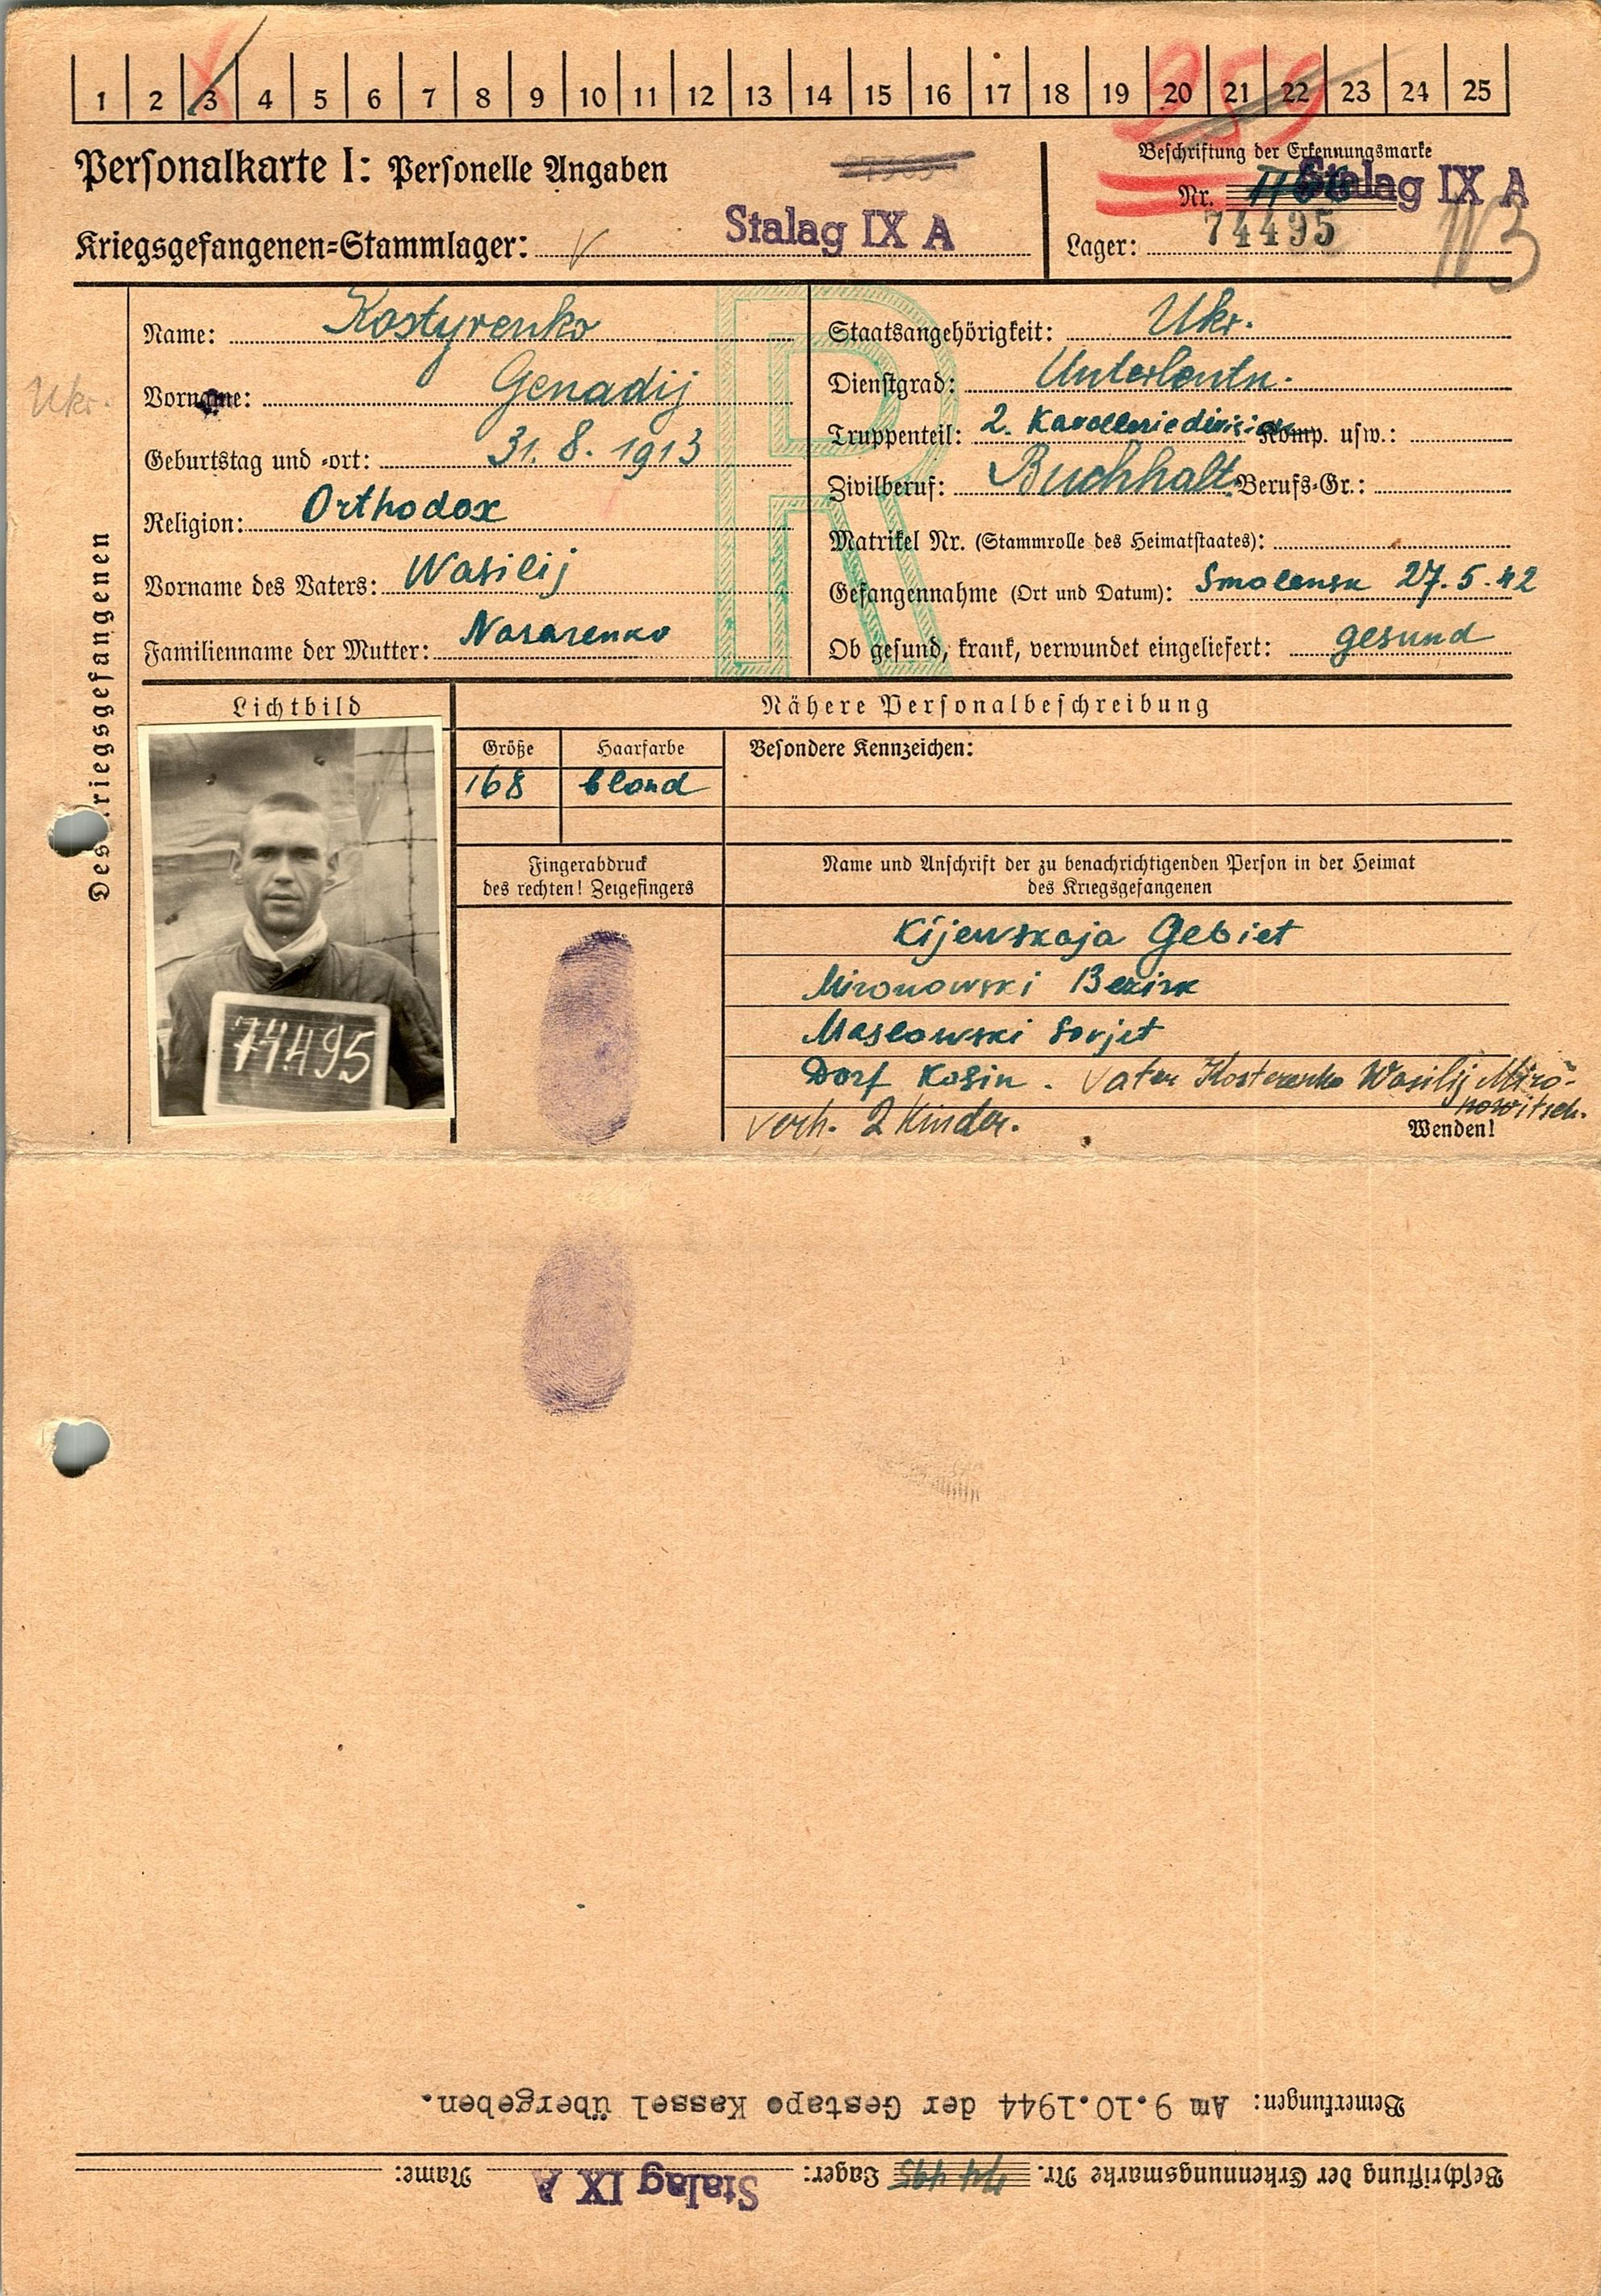 1 2 3 4 5 6 7 8 9 10 11 12 13 14 15 16 17 18 19 20 21 22 23 24 25
259
Personalkarte I: Personelle Angaben
Beschriftung der Erkennungsmarke
Nr. Stalag IX A
Kriegsgefangenen=Stammlager: Stalag IX A
74495
Lager:
Des Kriegsgefangenen
Ukr.
Name: Kostyrenko
Vorname: Genadij
Geburtstag und -ort: 31. 8. 1913
Religion: Orthodox
Vorname des Vaters: Wasilij
Familienname der Mutter: Nasarenko
Staatsangehörigkeit: Ukr.
Dienstgrad: Unterleutn.
Truppenteil: 2. Kavalleriedivision Komp. usw.:
Zivilberuf: Buchhalt. Berufs=Gr.:
Matrikel Nr. (Stammrolle des Heimatstaates):
Gefangennahme (Ort und Datum): Smolensk 27. 5. 42
Ob gesund, krank, verwundet eingeliefert: gesund
R
Lichtbild
74495
Nähere Personalbeschreibung
Größe Haarfarbe Besondere Kennzeichen:
168 blond
Fingerabdruck
des rechten! Zeigefingers
Name und Anschrift der zu benachrichtigenden Person in der Heimat
des Kriegsgefangenen
Kijewskaja Gebiet
Mironowski Bezirk
Maslowski Sovjet
Dorf Kosin. Vater Kosterenko Wasilij Miro-
nowitsch.
verh. 2 Kinder.
Wenden!
Bemerkungen: Am 9.10.1944 der Gestapo Kassel übergeben.
Beschriftung der Erkennungsmarke Nr. 74495 Lager: Stalag IX A Name: